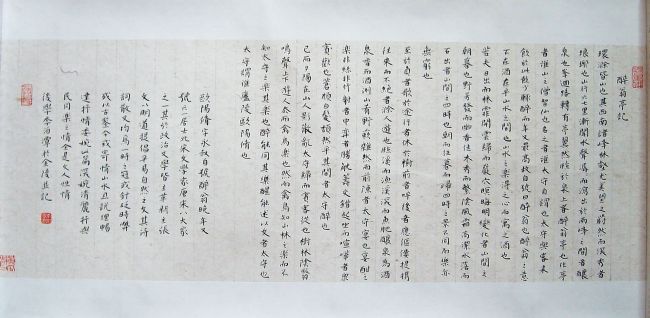 醉翁亭記
環滁皆山也其西南諸峰林壑尤美望之蔚然而深秀者
瑯琊也山行六七里漸聞水聲潺潺而瀉出於兩峰之間者釀
泉也峯迴路轉有亭翼然臨於泉上者醉翁亭也作亭
者誰山之僧智仙也名之者誰太守自謂也太守與客來
飲於此飲少輒醉而年又最高故自號曰醉翁也醉翁之意
不在酒在乎山水之間也山水之樂得之心而寓之酒也
若夫日出而林霏開雲歸而巖穴暝晦明變化者山間之
朝暮也野芳發而幽香佳木秀而繁陰風霜高潔水落而
石出者山間之四時也朝而往暮而歸四時之景不同而樂亦
無窮也
至於負者歌於塗行者休於樹前者呼後者應傴僂提攜
往來而不絕者滁人遊也臨溪而漁溪深而魚肥釀泉為酒
泉香而酒洌山肴野蔌雜然而前陳者太守宴也宴酣之
樂非絲非竹射者中弈者勝觥籌交錯起坐而諠譁者衆
賓歡也蒼顏白髮頹然乎其間者太守醉也
已而夕陽在山人影散亂太守歸而賓客從也樹林陰翳
鳴聲上下遊人去而禽鳥樂也然而禽鳥知山林之樂而不
知太守之樂其樂也醉能同其樂醒能述以文者太守也
太守謂誰廬陵歐陽脩也
歐陽脩字永叔自號醉翁晚年又
號六一居士北宋文學家唐宋八大家
之一其於政治文學皆主革新主張
文以明道提倡平易自然之文其詩
詞散文均為一時之冠
民同樂之情